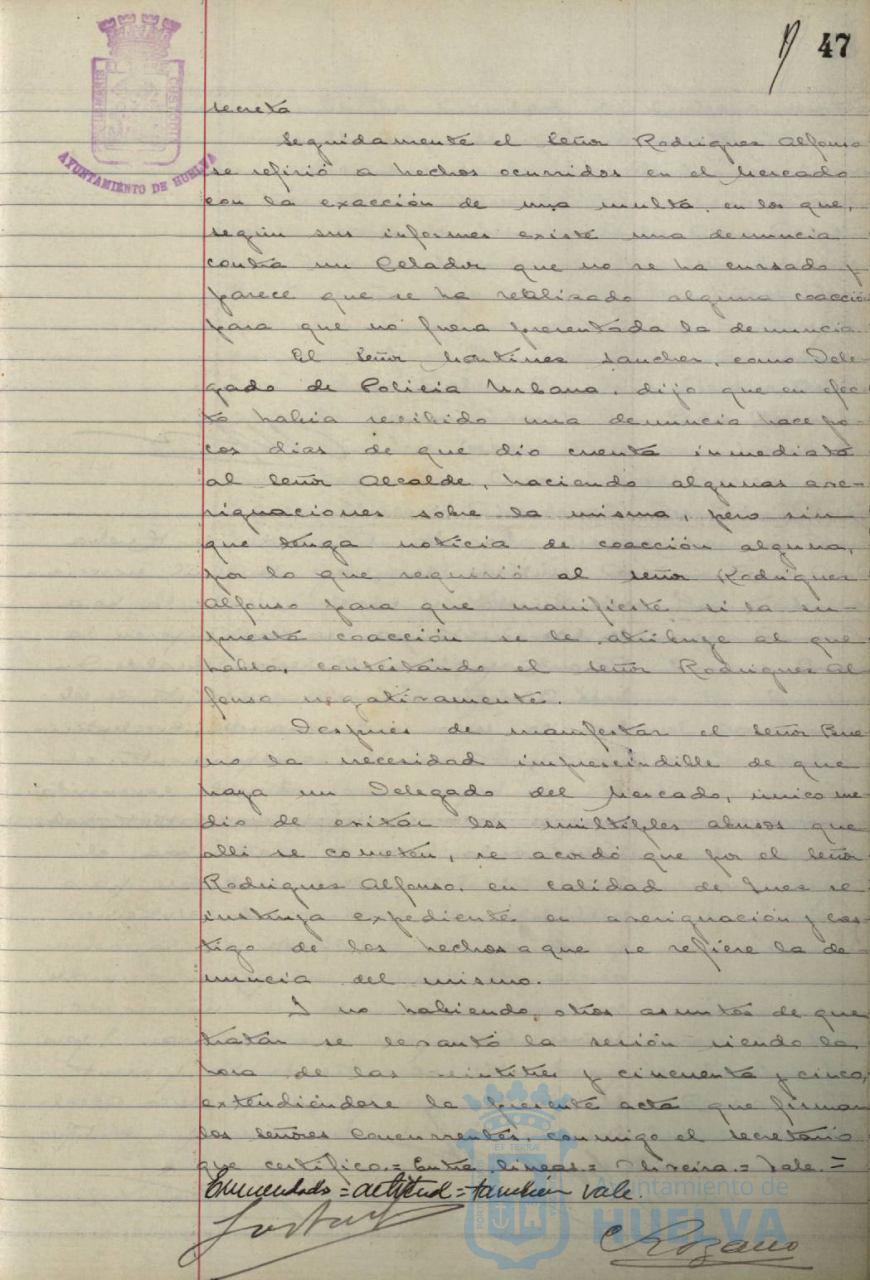 47
AYUNTAMIENTO DE HUELVA
secreta
Seguidamente el Señor Rodriguez Alfonso
se refirió a hechos ocurridos en el Mercado
con la exacción de una multa, en los que,
según sus informes existe una denuncia
contra un Celador que no se ha cursado y
parece que se ha realizado alguna coacción
para que no fuera presentada la denuncia.
El Señor Martinez Sanchez, como Dele-
gado de Policia Urbana, dijo que en efec-
to habia recibido una denuncia hace po-
cos dias de que dio cuenta inmediata
al Señor Alcalde, haciendo algunas ave-
riguaciones sobre la misma, pero sin
que tenga noticia de coacción alguna,
por lo que requirió al señor Rodriguez
Alfonso para que manifieste si la su-
puesta coacción se le atribuye al que
habla, contestando el señor Rodriguez Al
fonso negativamente.
Despues de manifestar el Señor
no la necesidad imprescindible de que
haya un Delegado del Mercado, único me-
dio de evitar los multiples abusos que
alli se cometen, se acordó que por el Señor
Rodriguez Alfonso, en calidad de Juez se
instruya expediente en averiguación y cas-
tigo de los hechos a que se refiere la de-
nuncia del mismo.
Y no habiendo otros asuntos de que
tratar se levantó la sesión siendo la
hora de las veintitres y cincuenta y cinco,
extendiéndose la presente acta que firman
los señores concurrentes, conmigo el secretario
que certifico.= Entre lineas.= = Vale.=
Enmendado = actitud = tambien vale.
Lozano
Ayuntamiento de
HUELVA